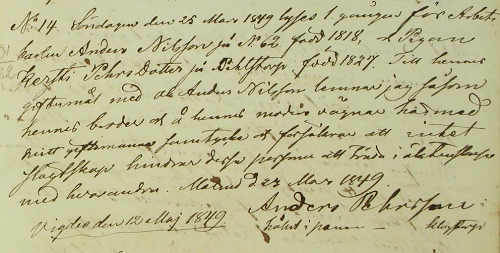 No 14. Söndagen den 25 Mars 1849 lyses 1 gången för Arbets
karlen Anders Nilsson på No 62 född 1818, & Pigan
Kersti Pehrs Dotter på född 1827. Till hennes
giftermål med Anders Nilsson lemnar jag såsom
hennes broder och å hennes moders vägnar härmed
mitt samtycke och försäkrar att intet
Skyldskap hindrar desse personer att träda i äktenskap
med hvarandra. Malmö d 22 Mars 1849
Anders Pehrsson
Vigdes den 12 Maj 1849
hållit i pennan